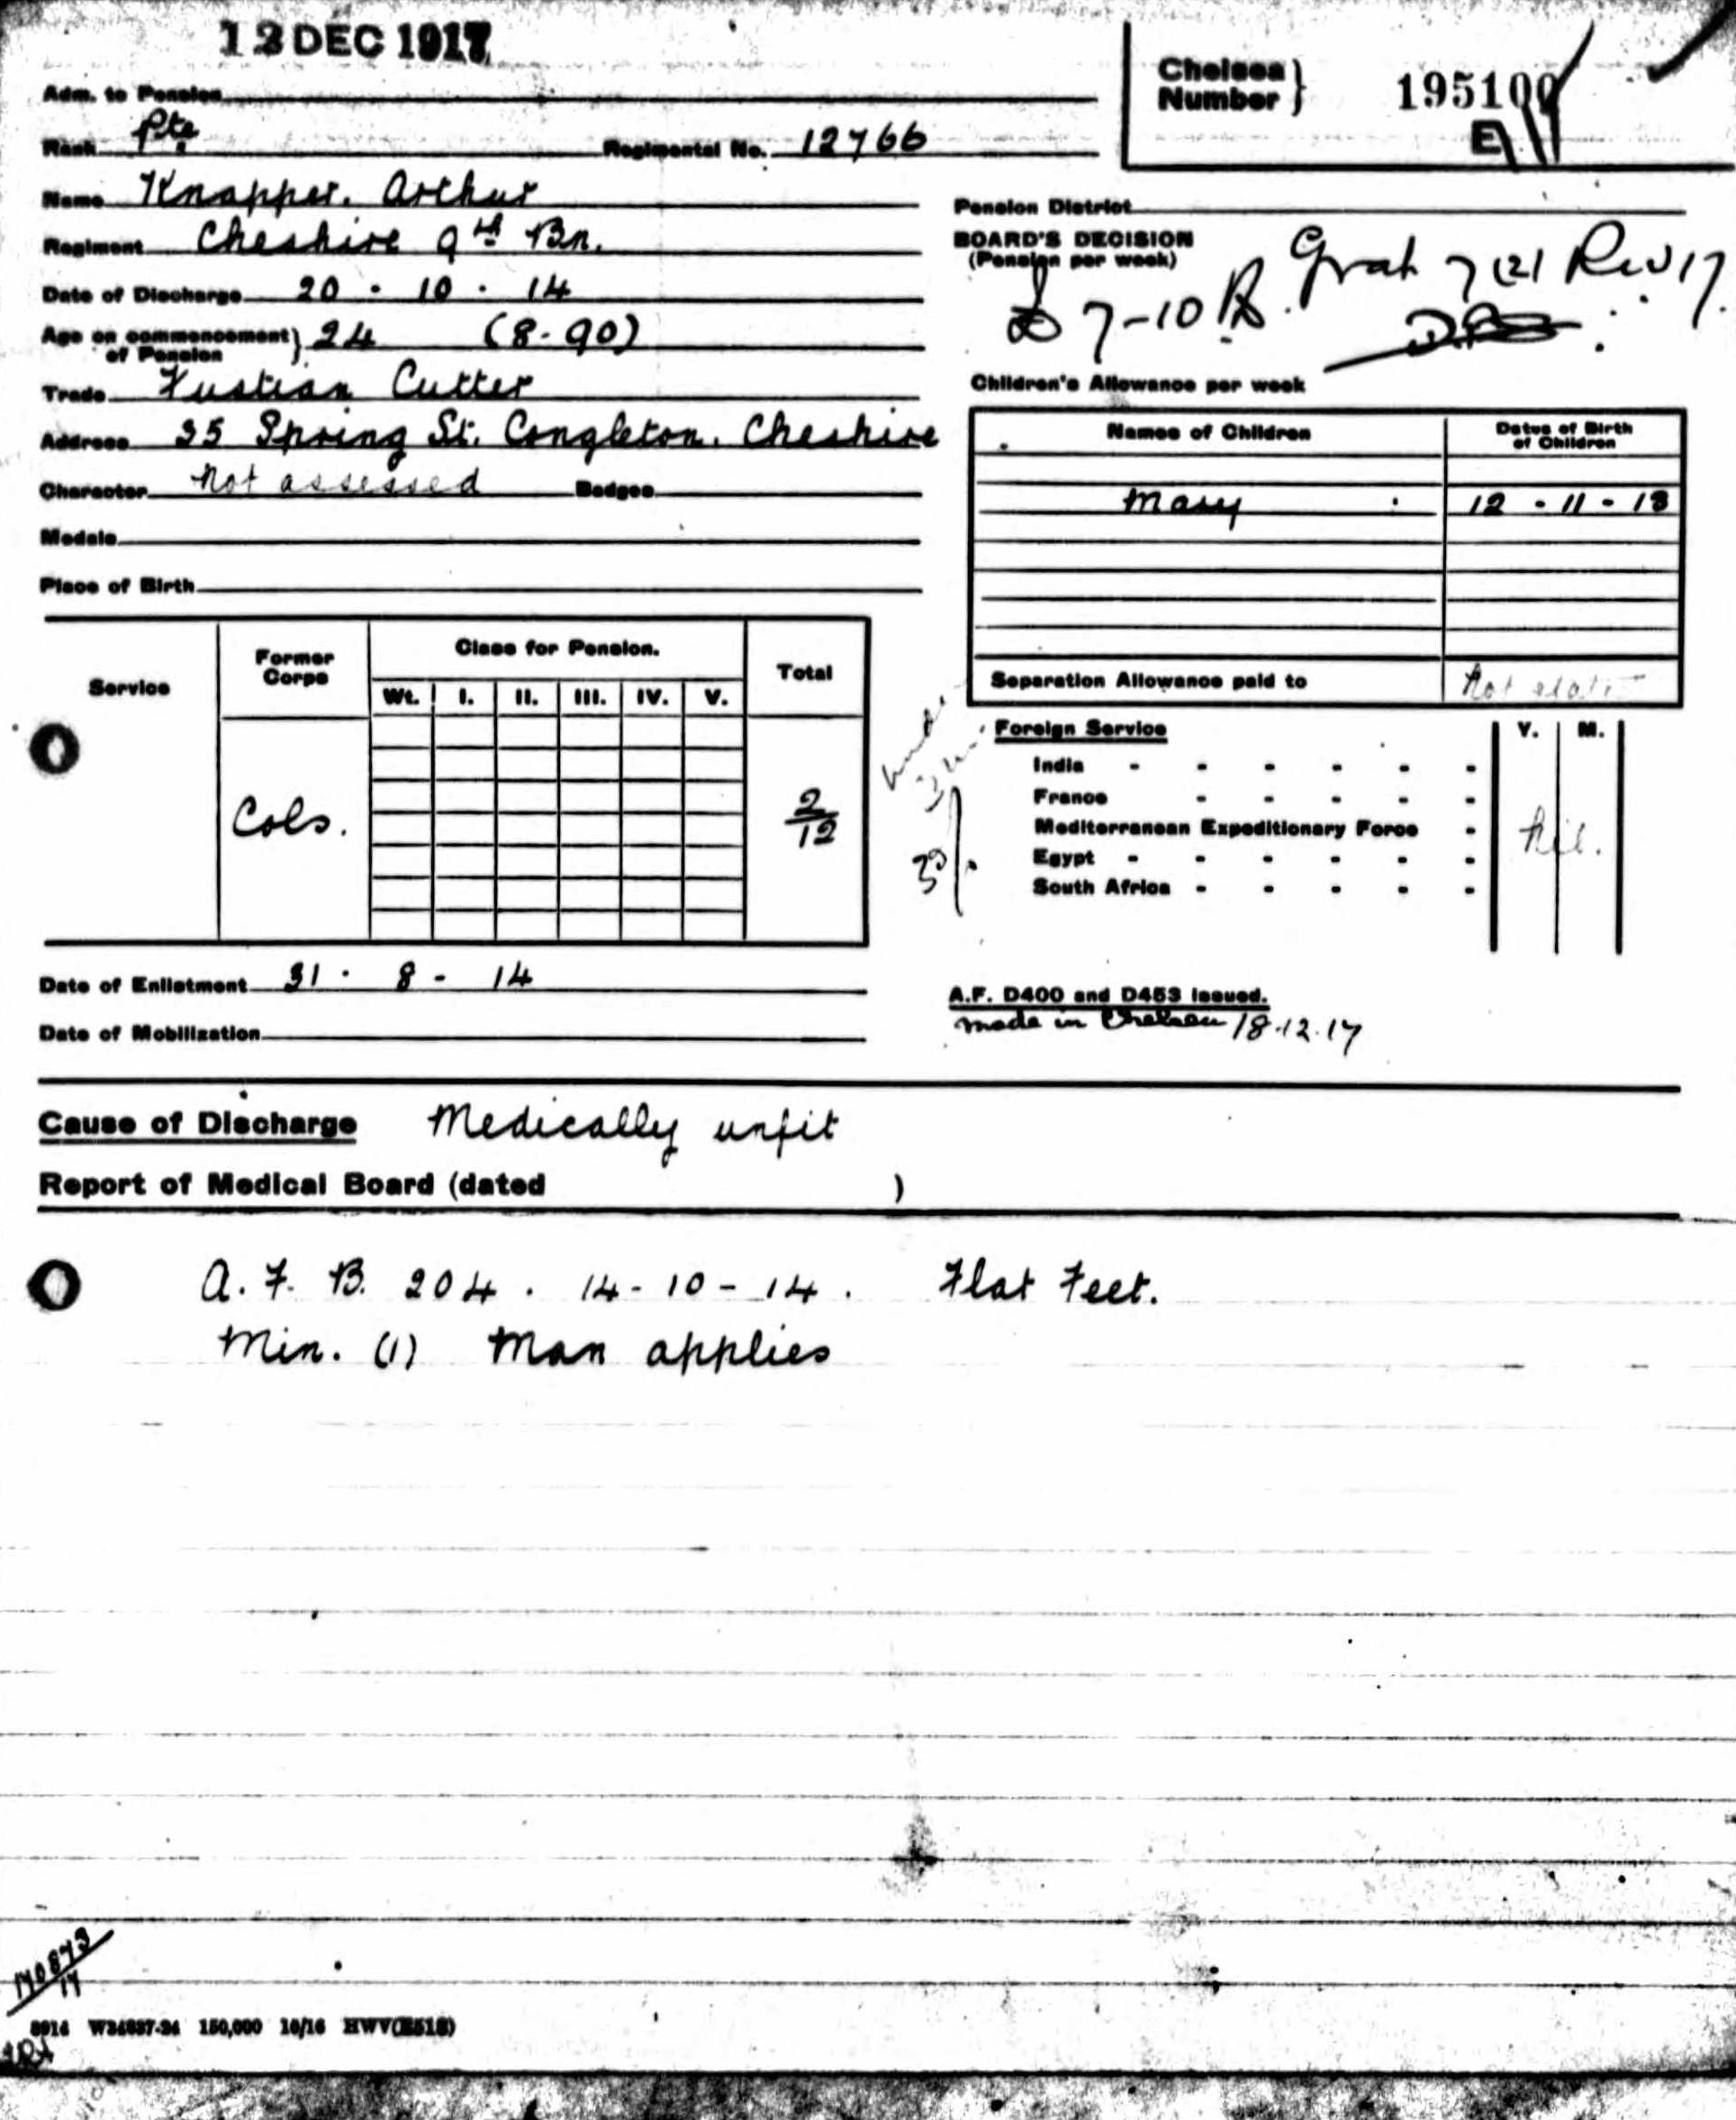 12 DEC 1917
Chelsea Number } 195100
E
Adm. to Pension
Rank Pte. Regimental No. 12766
Name Knapper. Arthur
Regiment Cheshire 9th Bn.
Date of Discharge 20 . 10 . 14
Age on commencement of Pension } 24 (8.90)
Trade Fustian Cutter
Address 35 Spring St. Congleton. Cheshire
Character Not assessed Badges
Medals
Place of Birth
Pension District
BOARD'S DECISION
(Pension per week)
Grat 7 (2) Rev 17.
£ 7-10
Children's Allowance per week
Names of Children Dates of Birth of Children
Mary 12 - 11 - 13
Separation Allowance paid to Not
Service Former Corps Class for Pension. Total
Wt. I. II. III. IV. V.
Cols. 2/12
Foreign Service Y. M.
India
France
Mediterranean Expeditionary Force
Egypt
South Africa
Nil.
Date of Enlistment 31 . 8 - 14
Date of Mobilization
A.F. D400 and D453 issued.
made in Chelsea 18.12.17
Cause of Discharge Medically unfit
Report of Medical Board (dated )
A. F. B. 204 . 14-10-14 . Flat Feet.
Min. (1) Man applies
140873/17
8914 W34837-34 150,000 10/16 HWV(E518)